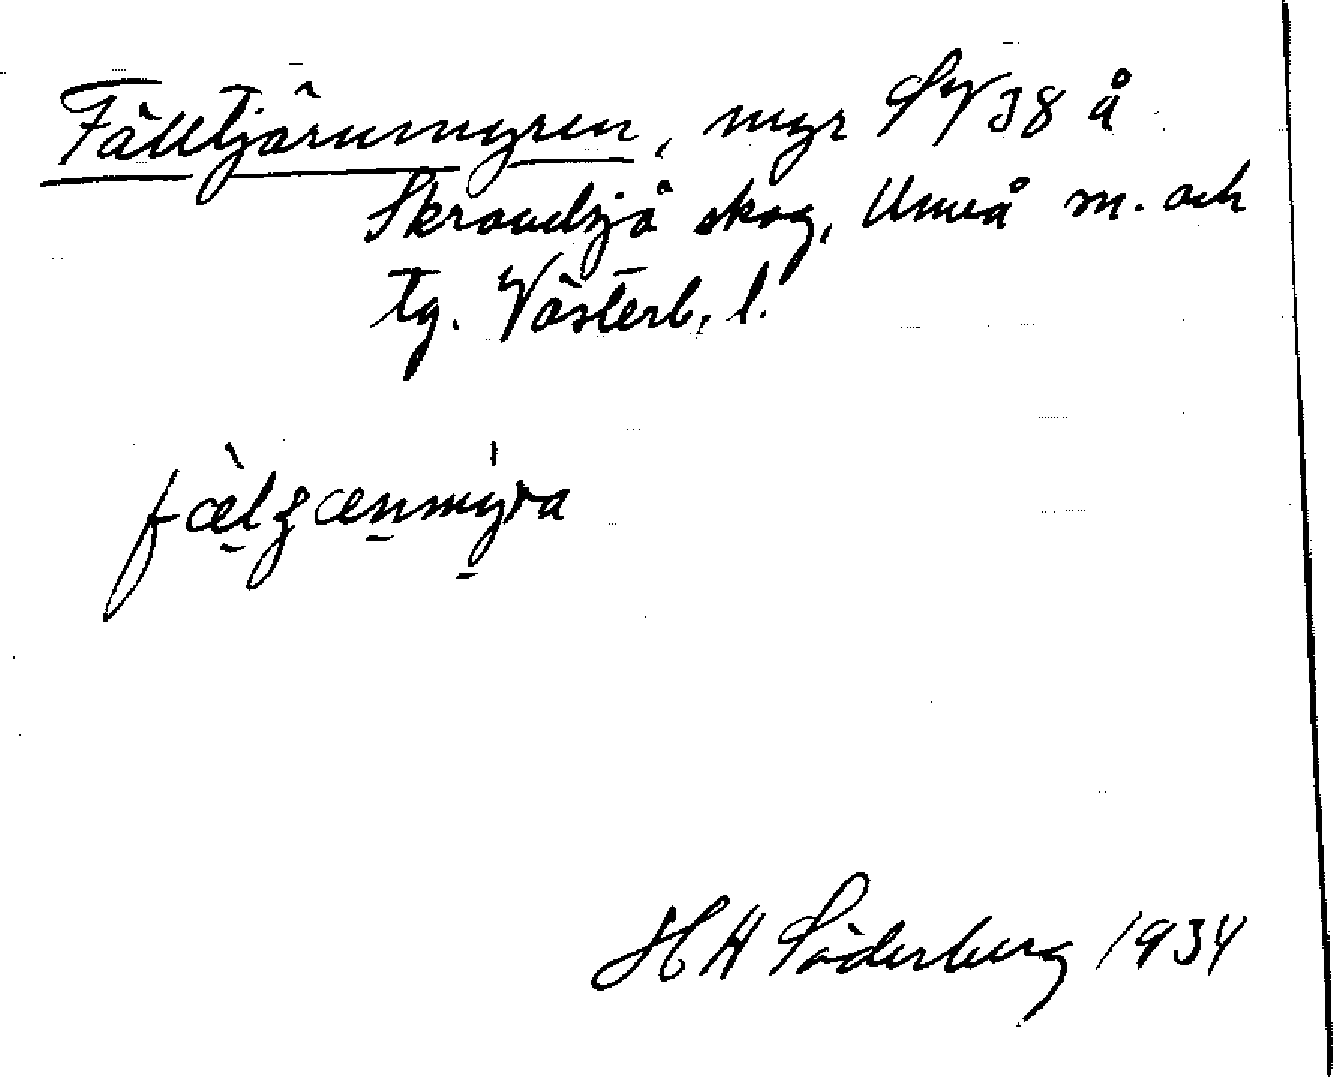 Fälltjärnmyren, myr SV 38 å
Skravelsjö skog, Umeå m. och
tg. Västerb. l.
HH Söderberg 1934